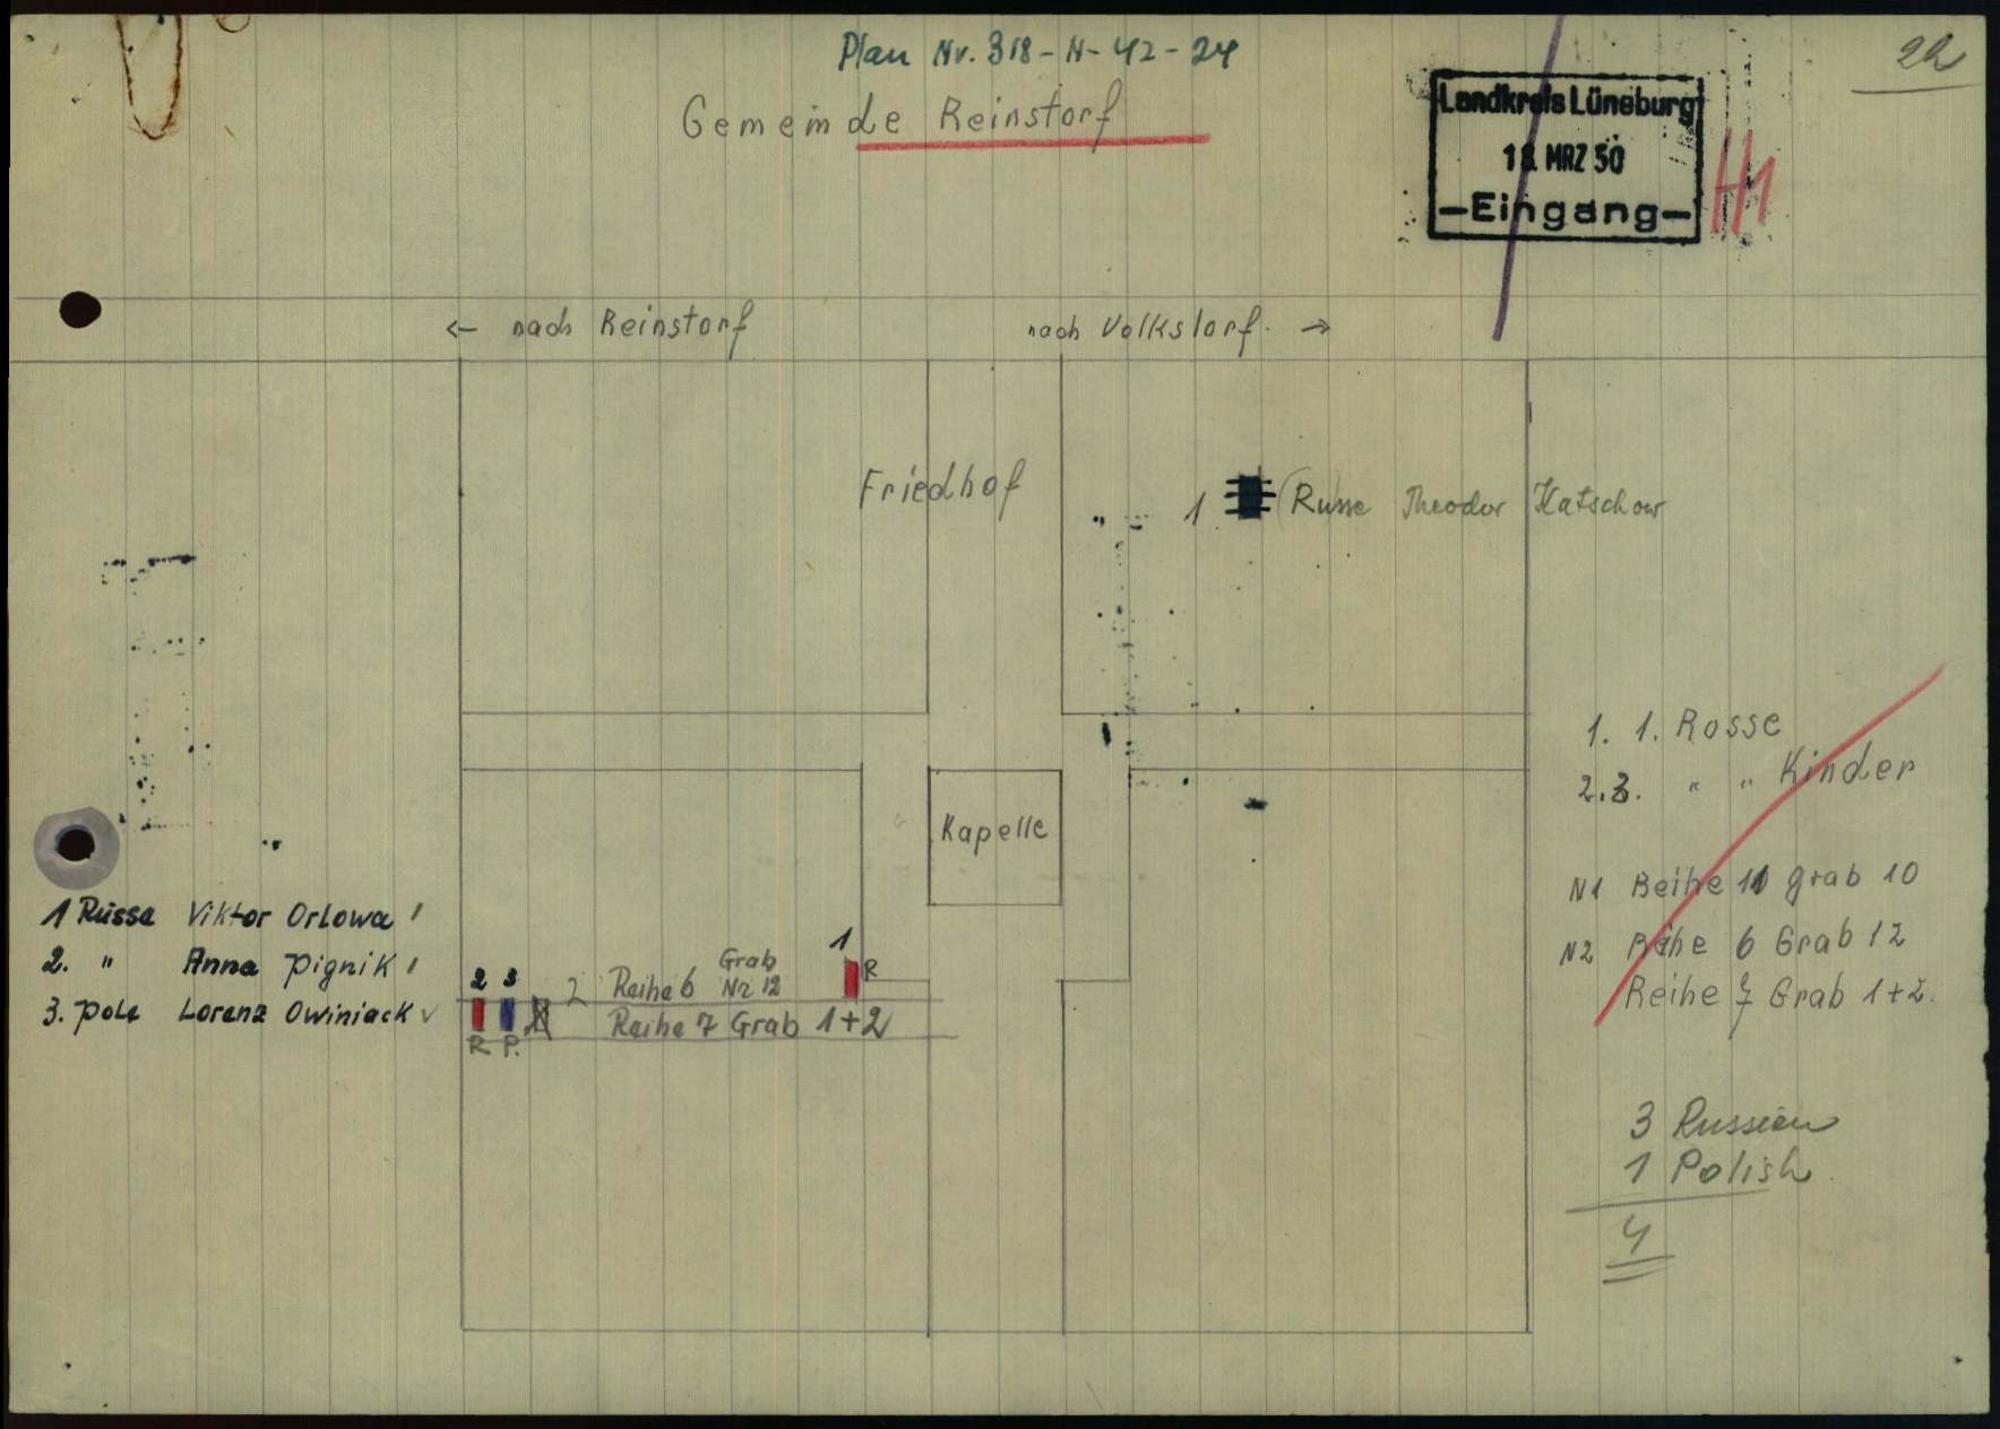 Plan Nr. 318-N-42-24
Gemeinde Reinstorf
Landkreis Lüneburg
18. MRZ 50
-Eingang-
H1
← nach Reinstorf
nach Volkstorf. →
Friedhof
1 (Russe Theodor Katschow
Kapelle
1. 1. Rosse
2.3. " " Kinder
N1 Reihe 11 Grab 10
N2 Reihe 6 Grab 12
Reihe 7 Grab 1+2.
1 Russe Viktor Orlowa
2. " Anna Pignik
3. Pole Lorenz Owiniack
1
R
2 3
2 Reihe 6 Grab Nr 12
Reihe 7 Grab 1+2
R P.
3 Russien
1 Polish
4